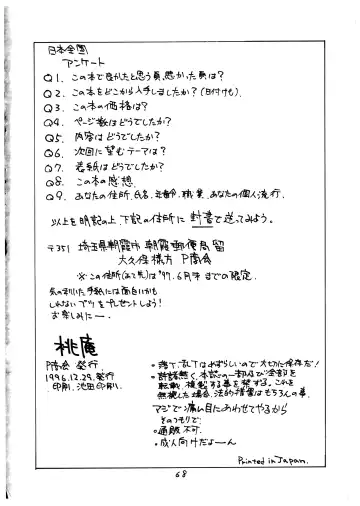 日本全国
アンケート
Q1. この本で良かったと思う頁、悪かった頁は?
Q2. この本をどこから入手しましたか?(日付けも)
Q3. この本の価格は?
Q4. ページ数はどうでしたか?
Q5. 内容はどうでしたか?
Q6. 次回に望むテーマは?
Q7. 表紙はどうでしたか?
Q8. この本の感想
Q9. あなたの住所、氏名、年齢、職業、あなたの個人流行.
以上を明記の上、下記の住所に封書で送ってみよう。
〒351 埼玉県朝霞市 朝霞郵便局留
大久保様方 P商会
※この住所(あて先)は'97.6月末までの限定.
気の利いた手紙には面白いかも
しれないブツをプレゼントしよう!
お楽しみにー.
桃庵
P商会 発行
1996.12.29.発行
印刷.池田印刷.
・落丁、乱丁はめずらしいので大切に保存だ!
・許諾無く、本誌の一部及び全部を
転載、複製する事を禁ずる。これを
無視した場合、法的措置はもちろんの事、
マジで痛い目にあわせてやるから
そのつもりで.
・通販不可.
・成人向けだよーん
Printed in Japan.
68